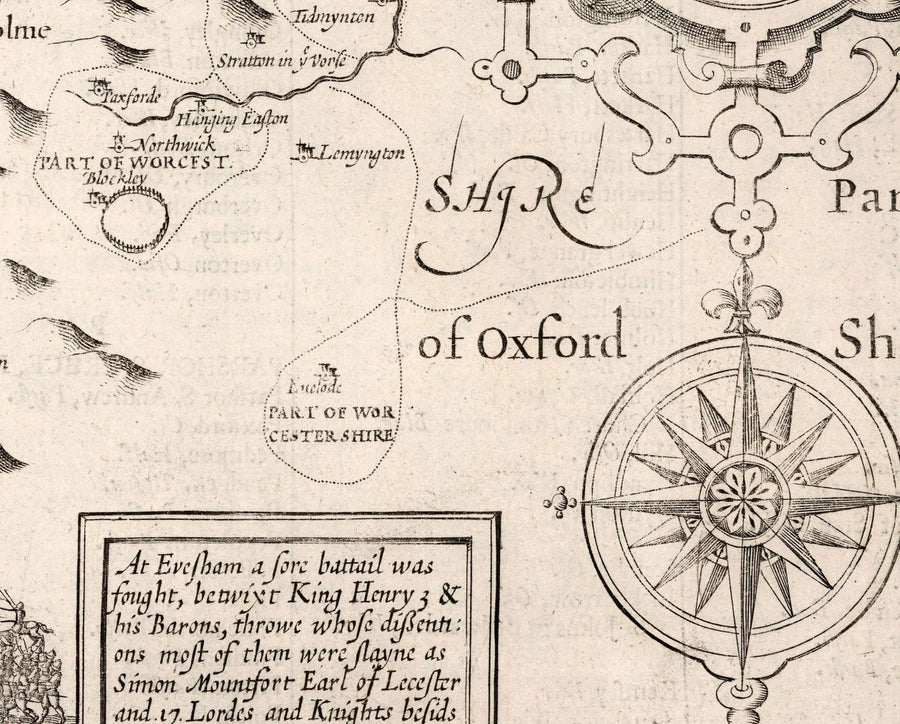 olme
Tidmynton
Stratton in ẙ Vorse
Taxforde
Hanging Easton
Northwick
Lemyngton
PART OF WORCEST.
Blockley
SHIRE
Par
of Oxford
Sh
Euelode
PART OF WOR
CESTERSHIRE
At Evesham a sore battail was
fought, betwixt King Henry 3 &
his Barons, throwe whose dissenti:
ons most of them were slayne as
Simon Mountfort Earl of Lecester
and .17. Lordes and Knights besids